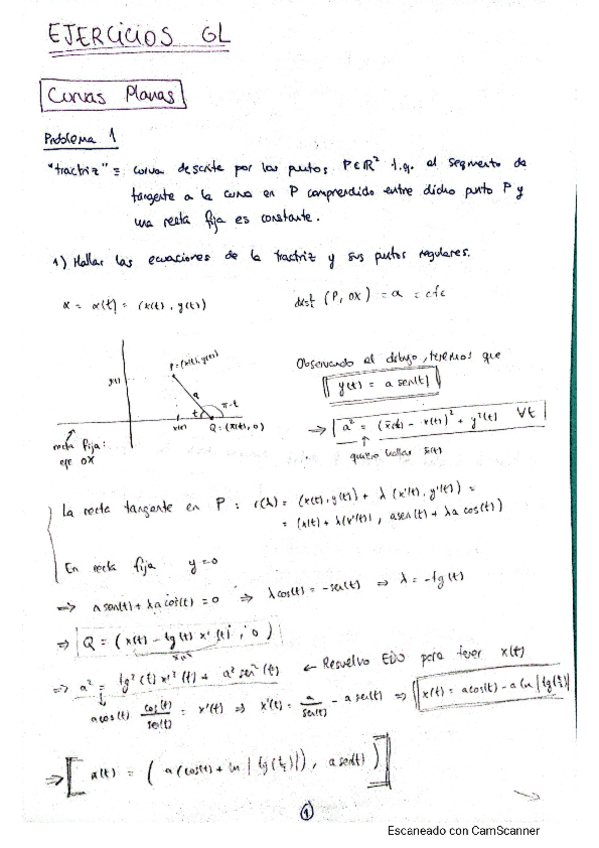 EJERCICIOS GL
Curvas Planas
Problema 1
"tractriz" ≡ curva descrita por los puntos P∈ℝ² t.q. el segmento de
tangente a la curva en P comprendido entre dicho punto P y
una recta fija es constante.
1) Hallar las ecuaciones de la tractriz y sus puntos regulares.
α = α(t) = (x(t), y(t))
dist (P, OX) = a = cte
Observando el dibujo, tenemos que
P=(x(t),y(t))
y(t)
a
t
π-t
x(t)
y(t) = a sen(t)
Q=(x̄(t),0)
⇒ a² = (x̄(t) - x(t))² + y²(t) ∀t
recta fija:
eje OX
quiero hallar x̄(t)
La recta tangente en P : r(λ) = (x(t), y(t)) + λ (x'(t), y'(t)) =
= (x(t) + λx'(t), asen(t) + λa cos(t))
En recta fija y=0
⇒ a sen(t) + λa cos(t) = 0 ⇒ λcos(t) = -sen(t) ⇒ λ = -tg(t)
⇒ Q = (x(t) - tg(t) x'(t), 0)
x̄(t)
⇒ a² = tg²(t) x'²(t) + a² sen²(t) ← Resuelvo EDO para tener x(t)
acos(t) cos(t)/sen(t) = x'(t) ⇒ x'(t) = a/sen(t) - a sen(t) ⇒ x(t) = acos(t) - a ln|tg(t/2)|
⇒ α(t) = (a(cos(t) + ln|tg(t/2)|), a sen(t))
1
Escaneado con CamScanner